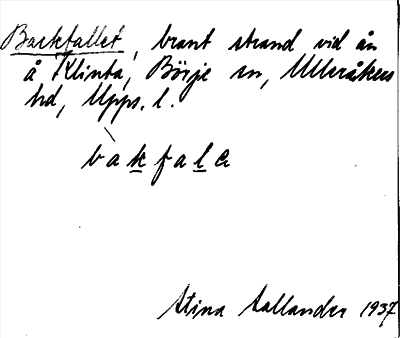 Backfallet, brant strand vid ån
å Klinta, Börje sn, Ulleråkers
hd, Upps. l.
bakfalɛ
Stina Sallander 1937